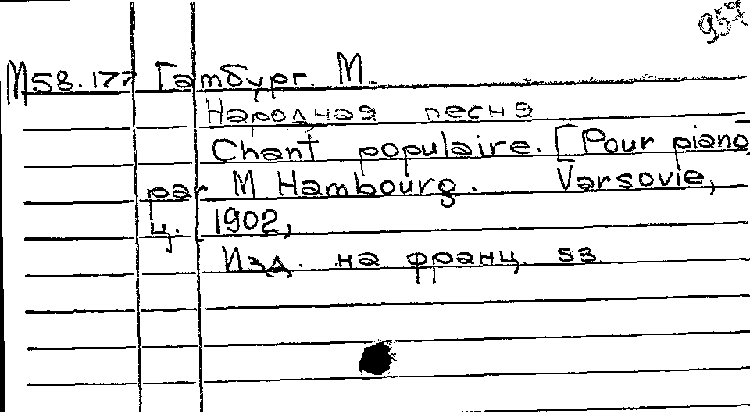 957
М58.177 Гамбург. М.
Народная песня
Chant populaire. [Pour piano
par M Hambourg. Varsovie,
ц. 1902,
Изд. на франц. яз